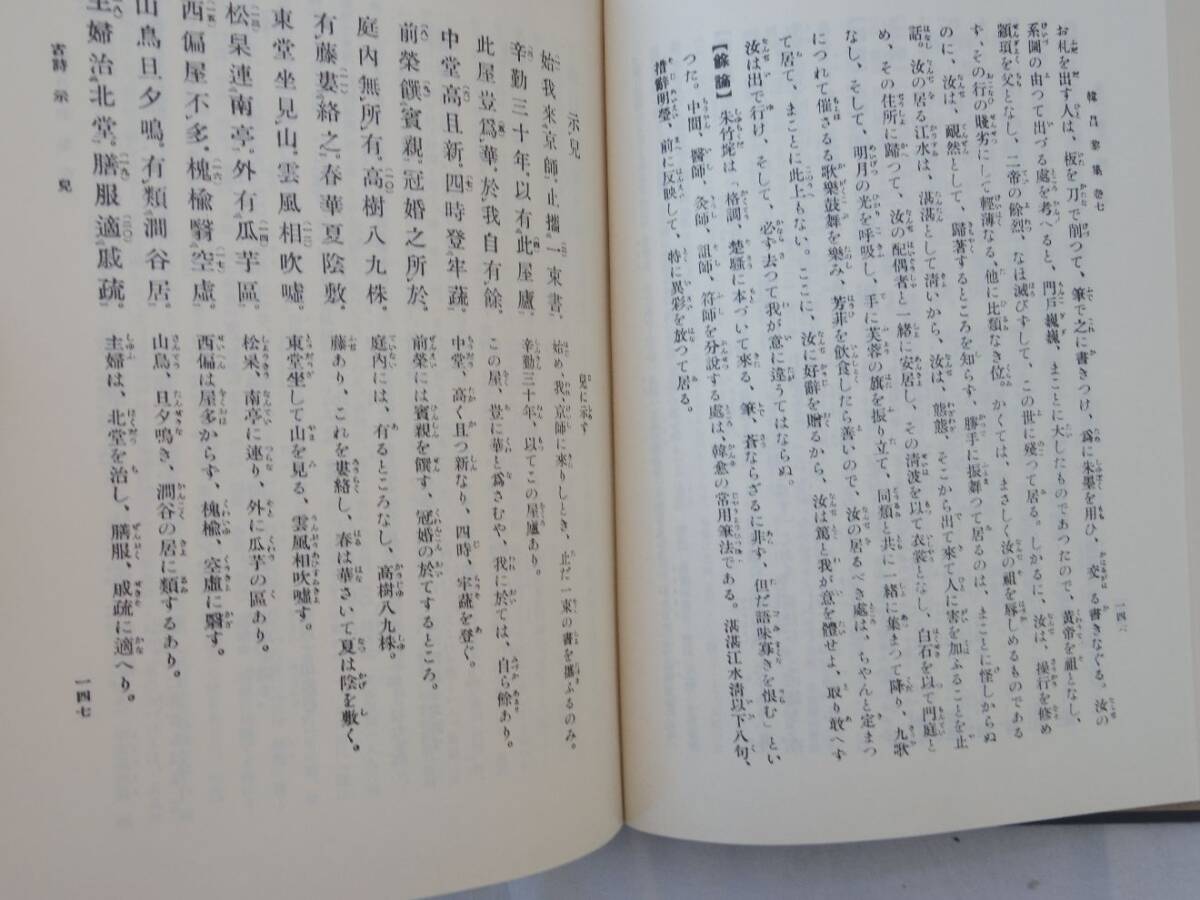 韓昌黎集 巻七
一四六
お札を出す人は、板を刀で削つて、筆で之に書きつけ、爲に朱墨を用ひ、交る書きなぐる。汝の
系圖の由つて出づる處を考へると、門戸巍巍、まことに大したものであつたので、黄帝を祖となし、
顓頊を父となし、二帝の餘烈、なほ滅びずして、この世に殘つて居る。しかるに、汝は、操行を修め
ず、その行の賤劣にして輕薄なる、他に比類なき位。かくては、まさしく汝の祖を辱しめるものである
のに、汝は、靦然として、歸著するところを知らず、勝手に振舞つて居るのは、まことに怪しからぬ
話。汝の居る江水は、湛湛として淸いから、汝は、態態、そこから出て來て人に害を加ふることを止
め、その住所に歸つて、汝の配偶者と一緒に安居し、その淸波を以て衣裳となし、白石を以て門庭と
なし、そして、明月の光を呼吸し、手に芙蓉の旗を振り立て、同類と共に一緒に集まつて降り、九歌
につれて催さるる歌樂鼓舞を樂み、芳菲を飲食したら善いので、汝の居るべき處は、ちやんと定まつ
て居て、まことに此上もない。ここに、汝に好辭を贈るから、汝は篤と我が意を體せよ、取り敢へず
汝は出で行け、そして、必ず去つて我が意に違うてはならぬ。
【餘論】 朱竹垞は「格調、楚騷に本づいて來る、筆、蒼ならざるに非ず、但だ語味寡きを恨む」とい
つた。中間、醫師、灸師、詛師、符師を分說する處は、韓愈の常用筆法である。湛湛江水淸以下八句、
措辭明瑩、前に反映して、特に異彩を放つて居る。
示兒
兒に示す
始我來京師、止攜一束書。
始め、我、京師に來りしとき、止だ一束の書を攜ふるのみ。
辛勤三十年、以有此屋廬。
辛勤三十年、以てこの屋廬あり。
此屋豈爲華、於我自有餘。
この屋、豈に華と爲さむや、我に於ては、自ら餘あり。
中堂高且新、四時登牢蔬。
中堂、高く且つ新なり、四時、牢蔬を登ぐ。
前榮饌賓親、冠婚之所於。
前榮には賓親を饌す、冠婚の於てするところ。
庭內無所有、高樹八九株。
庭內には、有るところなし、高樹八九株。
有藤婁絡之、春華夏陰敷。
藤あり、これを婁絡し、春は華さいて夏は陰を敷く。
東堂坐見山、雲風相吹噓。
東堂坐して山を見る、雲風相吹噓す。
松果連南亭、外有瓜芋區。
松果、南亭に連り、外に瓜芋の區あり。
西偏屋不多、槐楡翳空虛。
西偏は屋多からず、槐楡、空虛に翳す。
山鳥旦夕鳴、有類澗谷居。
山鳥、旦夕鳴き、澗谷の居に類するあり。
主婦治北堂、膳服適戚疏。
主婦は、北堂を治し、膳服、戚疏に適へり。
古詩 示兒
一四七